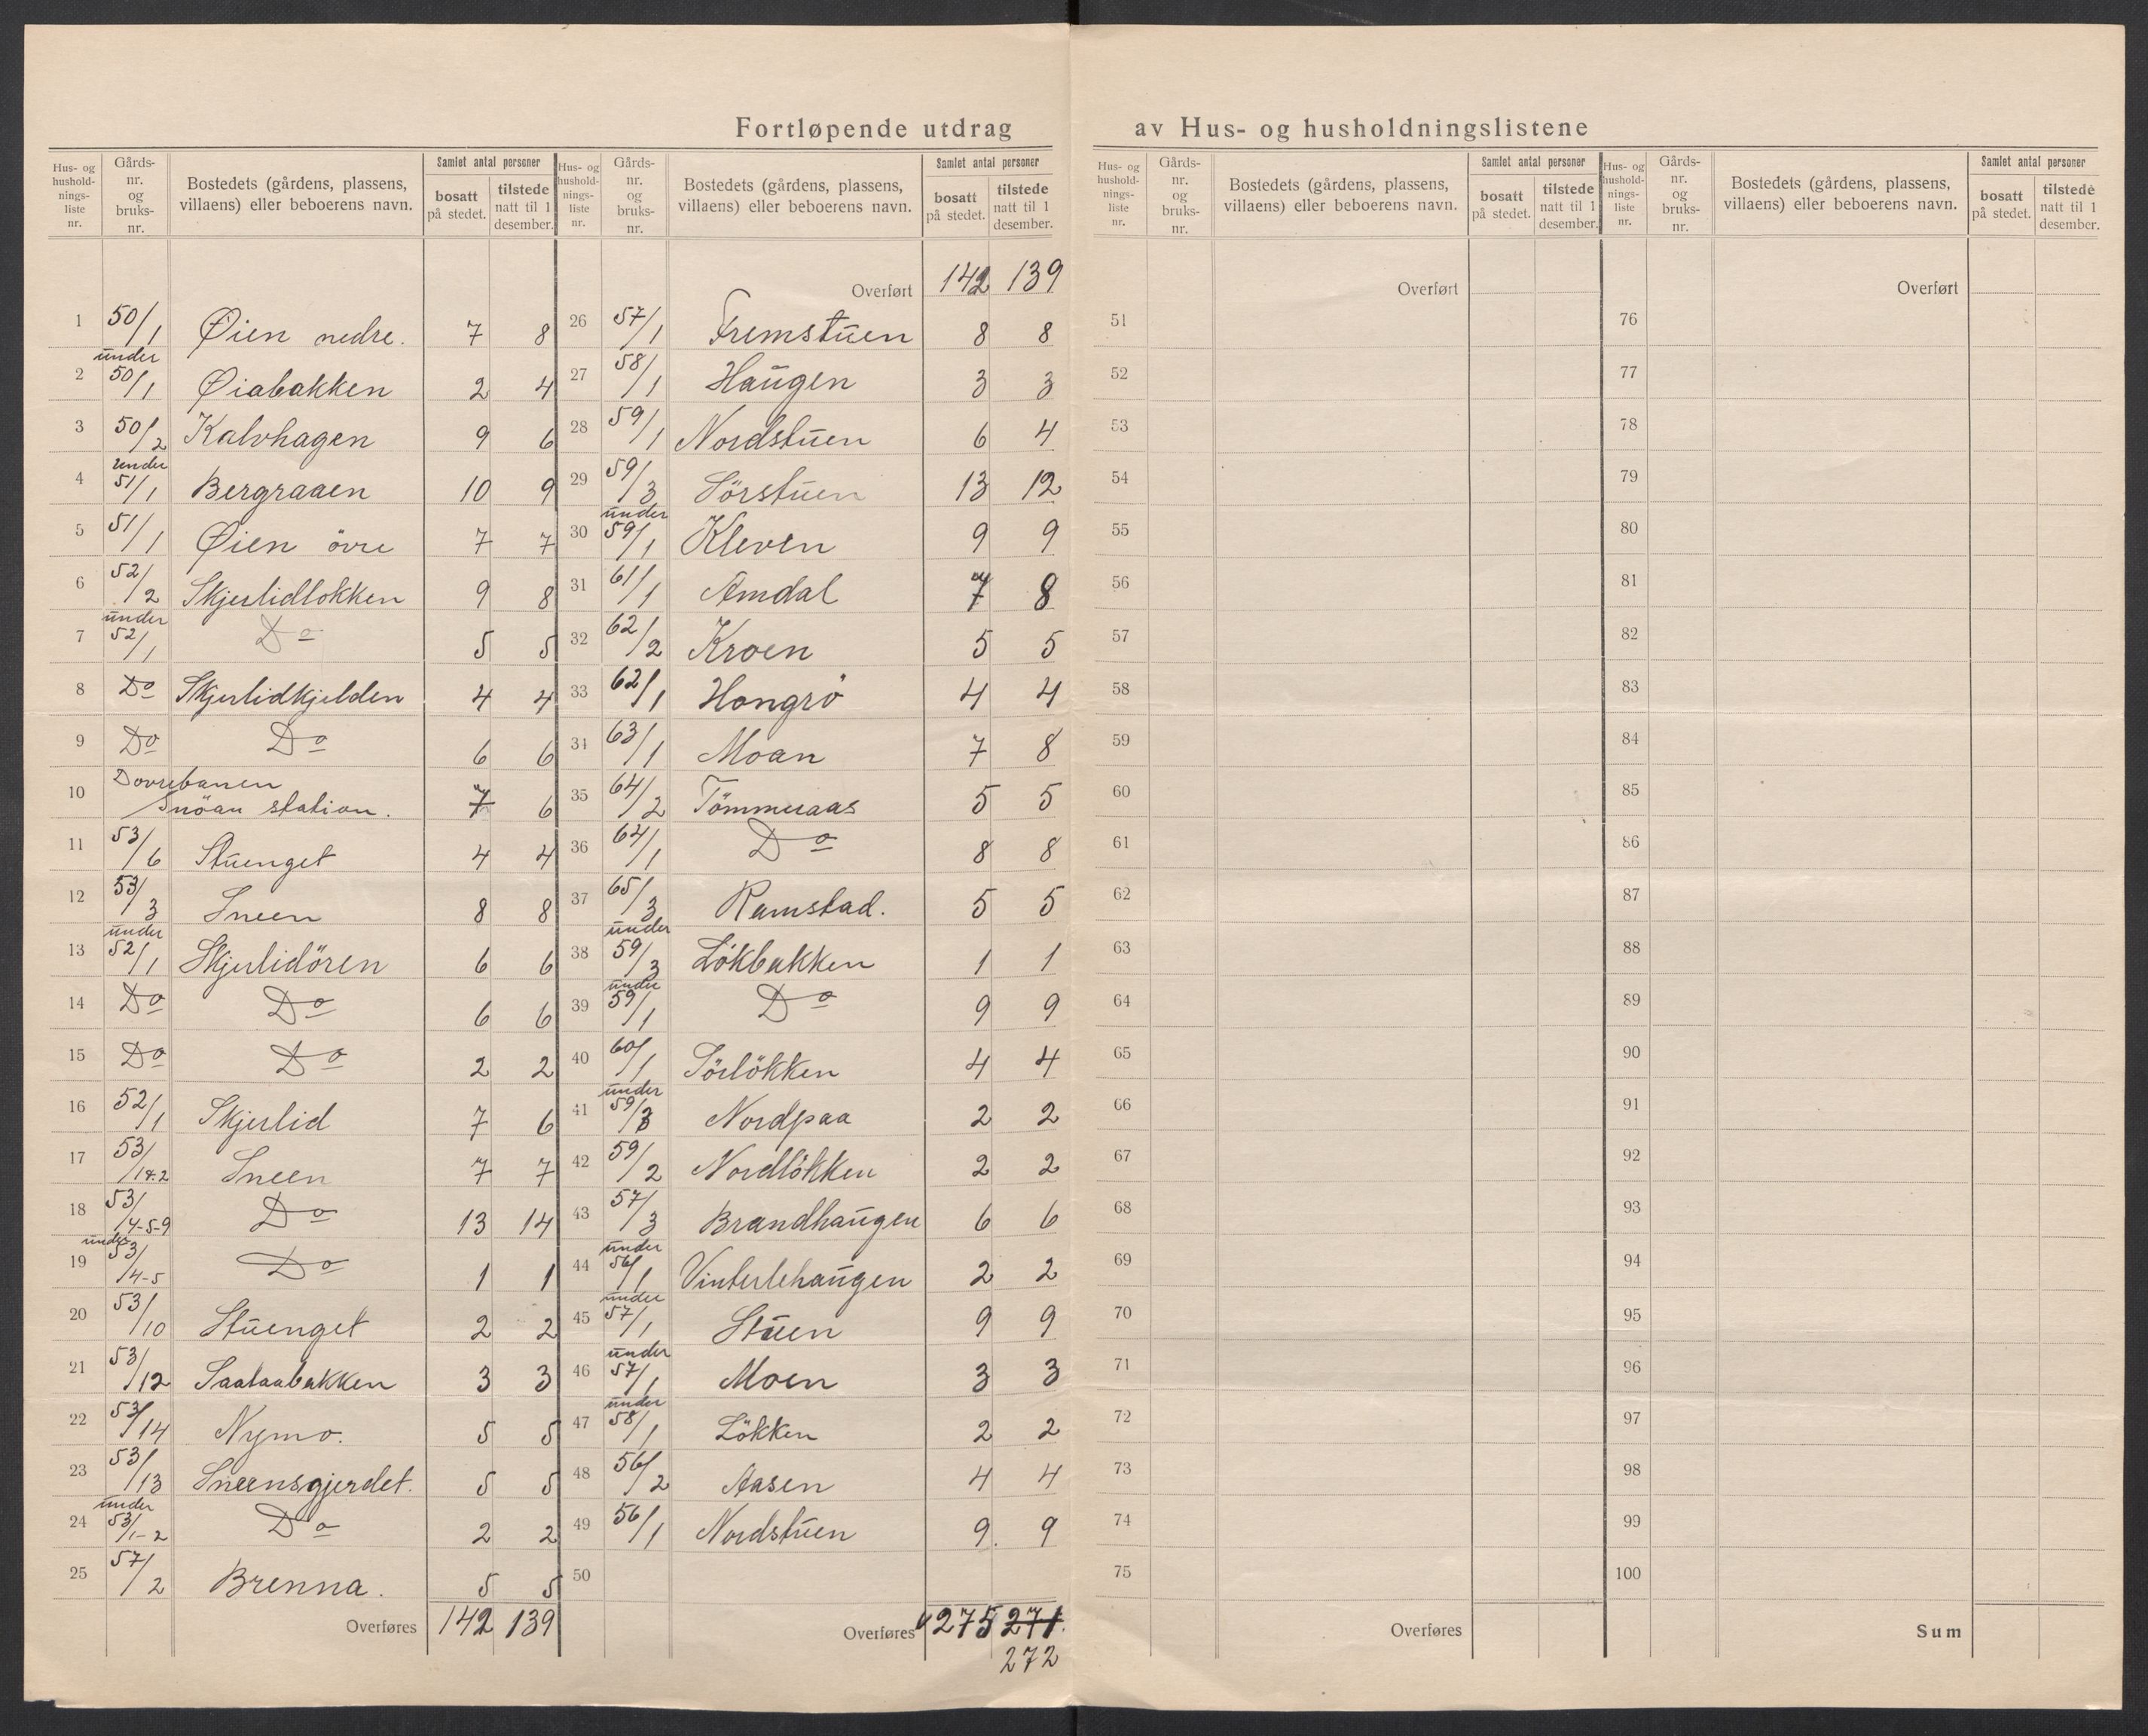 Fortløpende utdrag av Hus- og husholdningslistene
Hus- og husholdnings- liste nr. Gårds- nr. og bruks- nr. Bostedets (gårdens, plassens, villaens) eller beboerens navn. Samlet antal personer bosatt på stedet. tilstede natt til 1 desember.
1 50/1 Øien nedre. 7 8
2 under 50/1 Øiabakken 2 4
3 50/2 Kalvhagen 9 6
4 under 51/1 Bergraaen 10 9
5 51/1 Øien övre 7 7
6 52/2 Skjerlidlökken 9 8
7 under 52/1 Do 5 5
8 Do Skjerlidkjelden 4 4
9 Do Do 6 6
10 Dovrebanen Snöan station. 7 6
11 53/6 Stuenget 4 4
12 53/3 Sneen 8 8
13 under 52/1 Skjerlidören 6 6
14 Do Do 6 6
15 Do Do 2 2
16 52/1 Skjerlid 7 6
17 53/1&2 Sneen 7 7
18 53/4-5-9 Do 13 14
19 under 53/4-5 Do 1 1
20 53/10 Stuenget 2 2
21 53/12 Saataabakken 3 3
22 53/14 Nymo. 5 5
23 53/13 Sneensgjerdet. 5 5
24 under 53/1-2 Do 2 2
25 57/2 Brenna. 5 5
Overføres 142 139
Hus- og hushold- nings- liste nr. Gårds- nr. og bruks- nr. Bostedets (gårdens, plassens, villaens) eller beboerens navn. Samlet antal personer bosatt på stedet. tilstede natt til 1 desember.
Overført 142 139
26 57/1 Fremstuen 8 8
27 58/1 Haugen 3 3
28 59/1 Nordstuen 6 4
29 59/3 Sörstuen 13 12
30 under 59/1 Kleven 9 9
31 61/1 Amdal 7 8
32 62/2 Kroen 5 5
33 62/1 Hongrö 4 4
34 63/1 Moan 7 8
35 64/2 Tömmeraas 5 5
36 64/1 Do 8 8
37 65/3 Ramstad. 5 5
38 under 59/3 Lökbakken 1 1
39 under 59/1 Do 9 9
40 60/1 Sörlökken 4 4
41 under 59/3 Nordpaa 2 2
42 59/2 Nordlökken 2 2
43 57/3 Brandhaugen 6 6
44 under 56/1 Vinterlehaugen 2 2
45 under 57/1 Stuen 9 9
46 under 57/1 Moen 3 3
47 under 58/1 Lökken 2 2
48 56/2 Aasen 4 4
49 56/1 Nordstuen 9. 9
50
Overføres 275 271.
272
Hus- og hushold- nings- liste nr. Gårds- nr. og bruks- nr. Bostedets (gårdens, plassens, villaens) eller beboerens navn. Samlet antal personer bosatt på stedet. tilstede natt til 1 desember.
Overført
51
52
53
54
55
56
57
58
59
60
61
62
63
64
65
66
67
68
69
70
71
72
73
74
75
Overføres
Hus- og hushold- nings- liste nr. Gårds- nr. og bruks- nr. Bostedets (gårdens, plassens, villaens) eller beboerens navn. Samlet antal personer bosatt på stedet. tilstede natt til 1 desember.
Overført
76
77
78
79
80
81
82
83
84
85
86
87
88
89
90
91
92
93
94
95
96
97
98
99
100
Sum